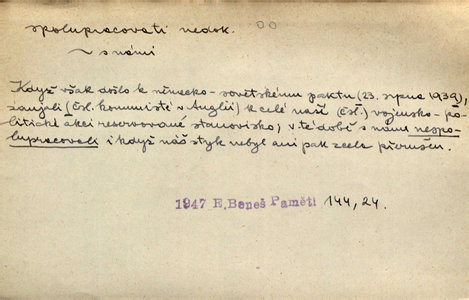 spolupracovati nedok.
~ s námi
Když však došlo k německo-sovětskému paktu (23. srpna 1939),
zaujali (čsl. komunisté v Anglii) k celé naší (čsl.) vojensko-po-
litické akci reservované stanovisko, v té době s námi nespo-
lupracovali i když náš styk nebyl ani pak zcela přerušen.
1947 E. Beneš Paměti 144, 24.